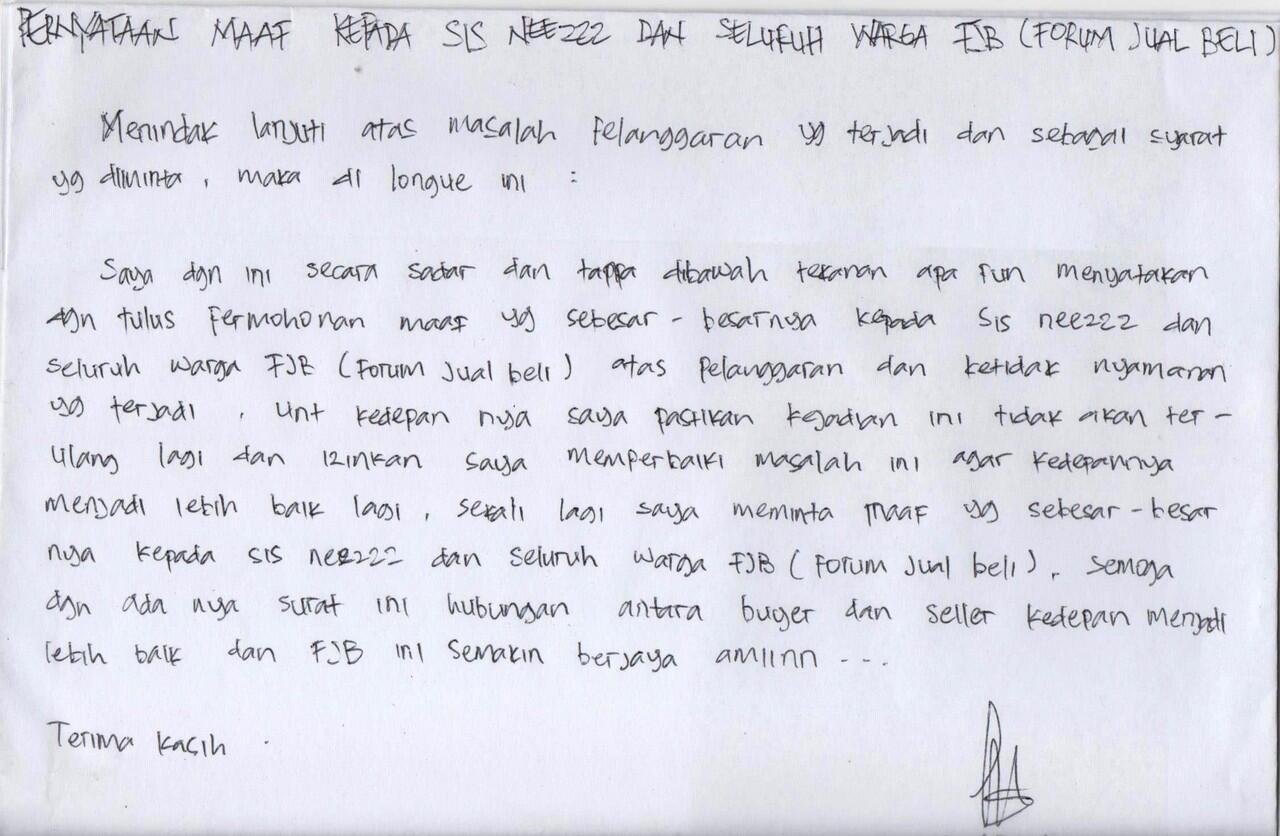 PERNYATAAN MAAF KEPADA SIS NEEZZZ DAN SELURUH WARGA FJB (FORUM JUAL BELI)
Menindak lanjuti atas masalah pelanggaran yg terjadi dan sebagai syarat
yg diminta, maka di longue ini :
Saya dgn ini secara sadar dan tappa dibawah tekanan apa pun menyatakan
dgn tulus permohonan maaf yg sebesar - besarnya kepada sis neezzz dan
seluruh warga FJB (Forum Jual beli) atas pelanggaran dan ketidak nyamanan
yg terjadi, unt kedepan nya saya pastikan kejadian ini tidak akan ter-
ulang lagi dan izinkan saya memperbaiki masalah ini agar kedepannya
menjadi lebih baik lagi, sekali lagi saya meminta maaf yg sebesar-besar
nya kepada sis neezzz dan seluruh warga FJB (Forum Jual beli), semoga
dgn ada nya surat ini hubungan antara buyer dan seller kedepan menjadi
lebih baik dan FJB ini semakin berjaya amiinn ---
Terima kasih .